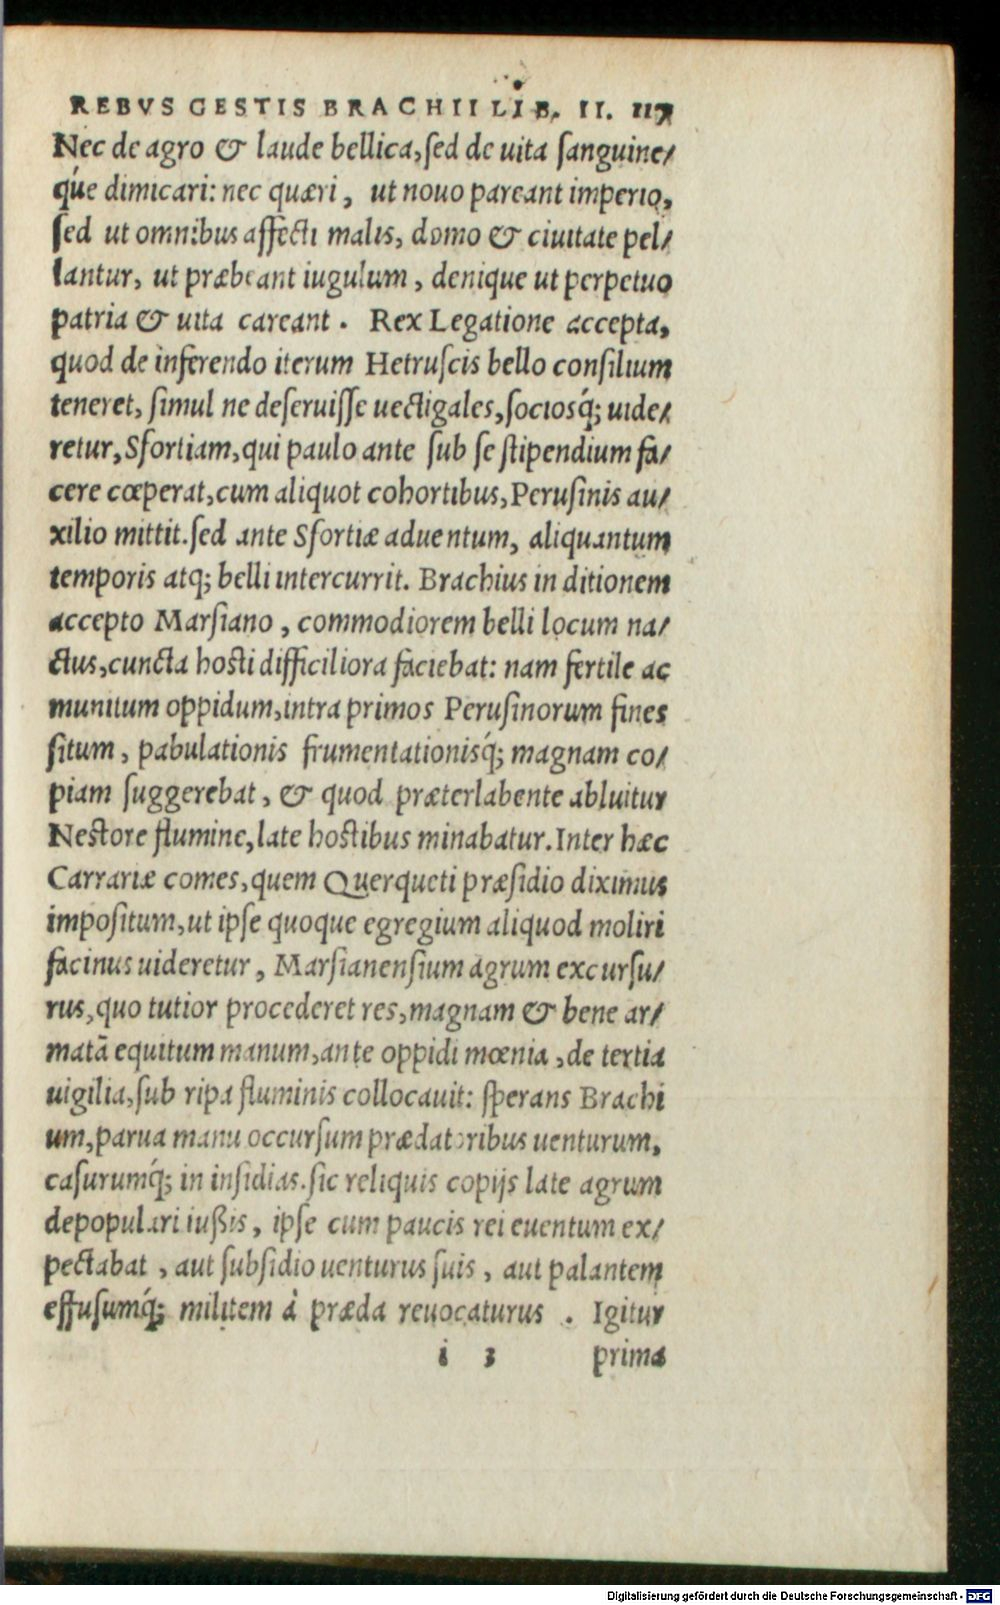 REBVS GESTIS BRACHII LIB. II. 117
Nec de agro & laude bellica, ſed de uita ſanguine/
q́ue dimicari: nec quæri, ut nouo pareant imperio,
ſed ut omnibus affecti malis, domo & ciuitate pel/
lantur, ut præbeant iugulum, denique ut perpetuo
patria & uita careant. Rex Legatione accepta,
quod de inferendo iterum Hetruſcis bello conſilium
teneret, ſimul ne deſeruiſſe uectigales, ſociosq́; uide/
retur, Sfortiam, qui paulo ante ſub ſe ſtipendium fa/
cere cœperat, cum aliquot cohortibus, Peruſinis au/
xilio mittit. ſed ante Sfortiæ aduentum, aliquantum
temporis atq; belli intercurrit. Brachius in ditionem
accepto Marſiano, commodiorem belli locum na/
ctus, cuncta hoſti difficiliora faciebat: nam fertile ac
munitum oppidum, intra primos Peruſinorum fines
ſitum, pabulationis frumentationisq́; magnam co/
piam ſuggerebat, & quod præterlabente abluitur
Neſtore flumine, late hoſtibus minabatur. Inter hæc
Carrariæ comes, quem Querqueti præſidio diximus
impoſitum, ut ipſe quoque egregium aliquod moliri
facinus uideretur, Marſianenſium agrum excurſu/
rus, quo tutior procederet res, magnam & bene ar/
matã equitum manum, ante oppidi mœnia, de tertia
uigilia, ſub ripa fluminis collocauit: ſperans Brachi
um, parua manu occurſum prædatoribus uenturum,
caſurumq́; in inſidias. ſic reliquis copijs late agrum
depopulari iußis, ipſe cum paucis rei euentum ex/
pectabat, aut ſubſidio uenturus ſuis, aut palantem
effuſumq́; militem à præda reuocaturus. Igitur
i 3 prima
Digitalisierung gefördert durch die Deutsche Forschungsgemeinschaft - DFG